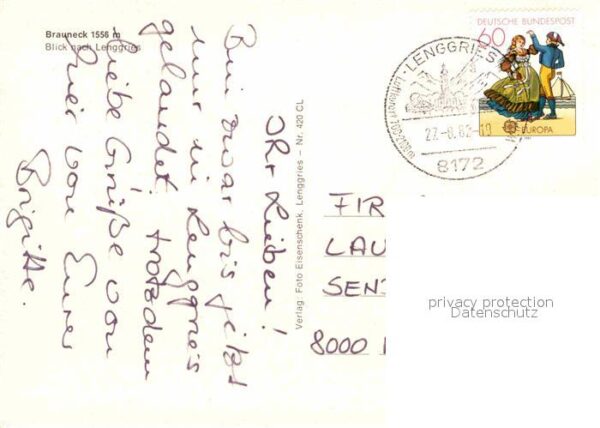 Brauneck 1556 m
Blick nach Lenggries
Ihr Lieben!
Bin zwar bis jetzt
nur in Lenggries
gelandet, trotzdem
liebe Grüße von
hier von Eurer
Brigitte.
Verlag Foto Eisenschenk, Lenggries – Nr. 420 CL
DEUTSCHE BUNDESPOST
60
EUROPA
LENGGRIES
Luftkurort 700-2100 m
8172
FIR
LAU
SEN
8000
privacy protection
Datenschutz